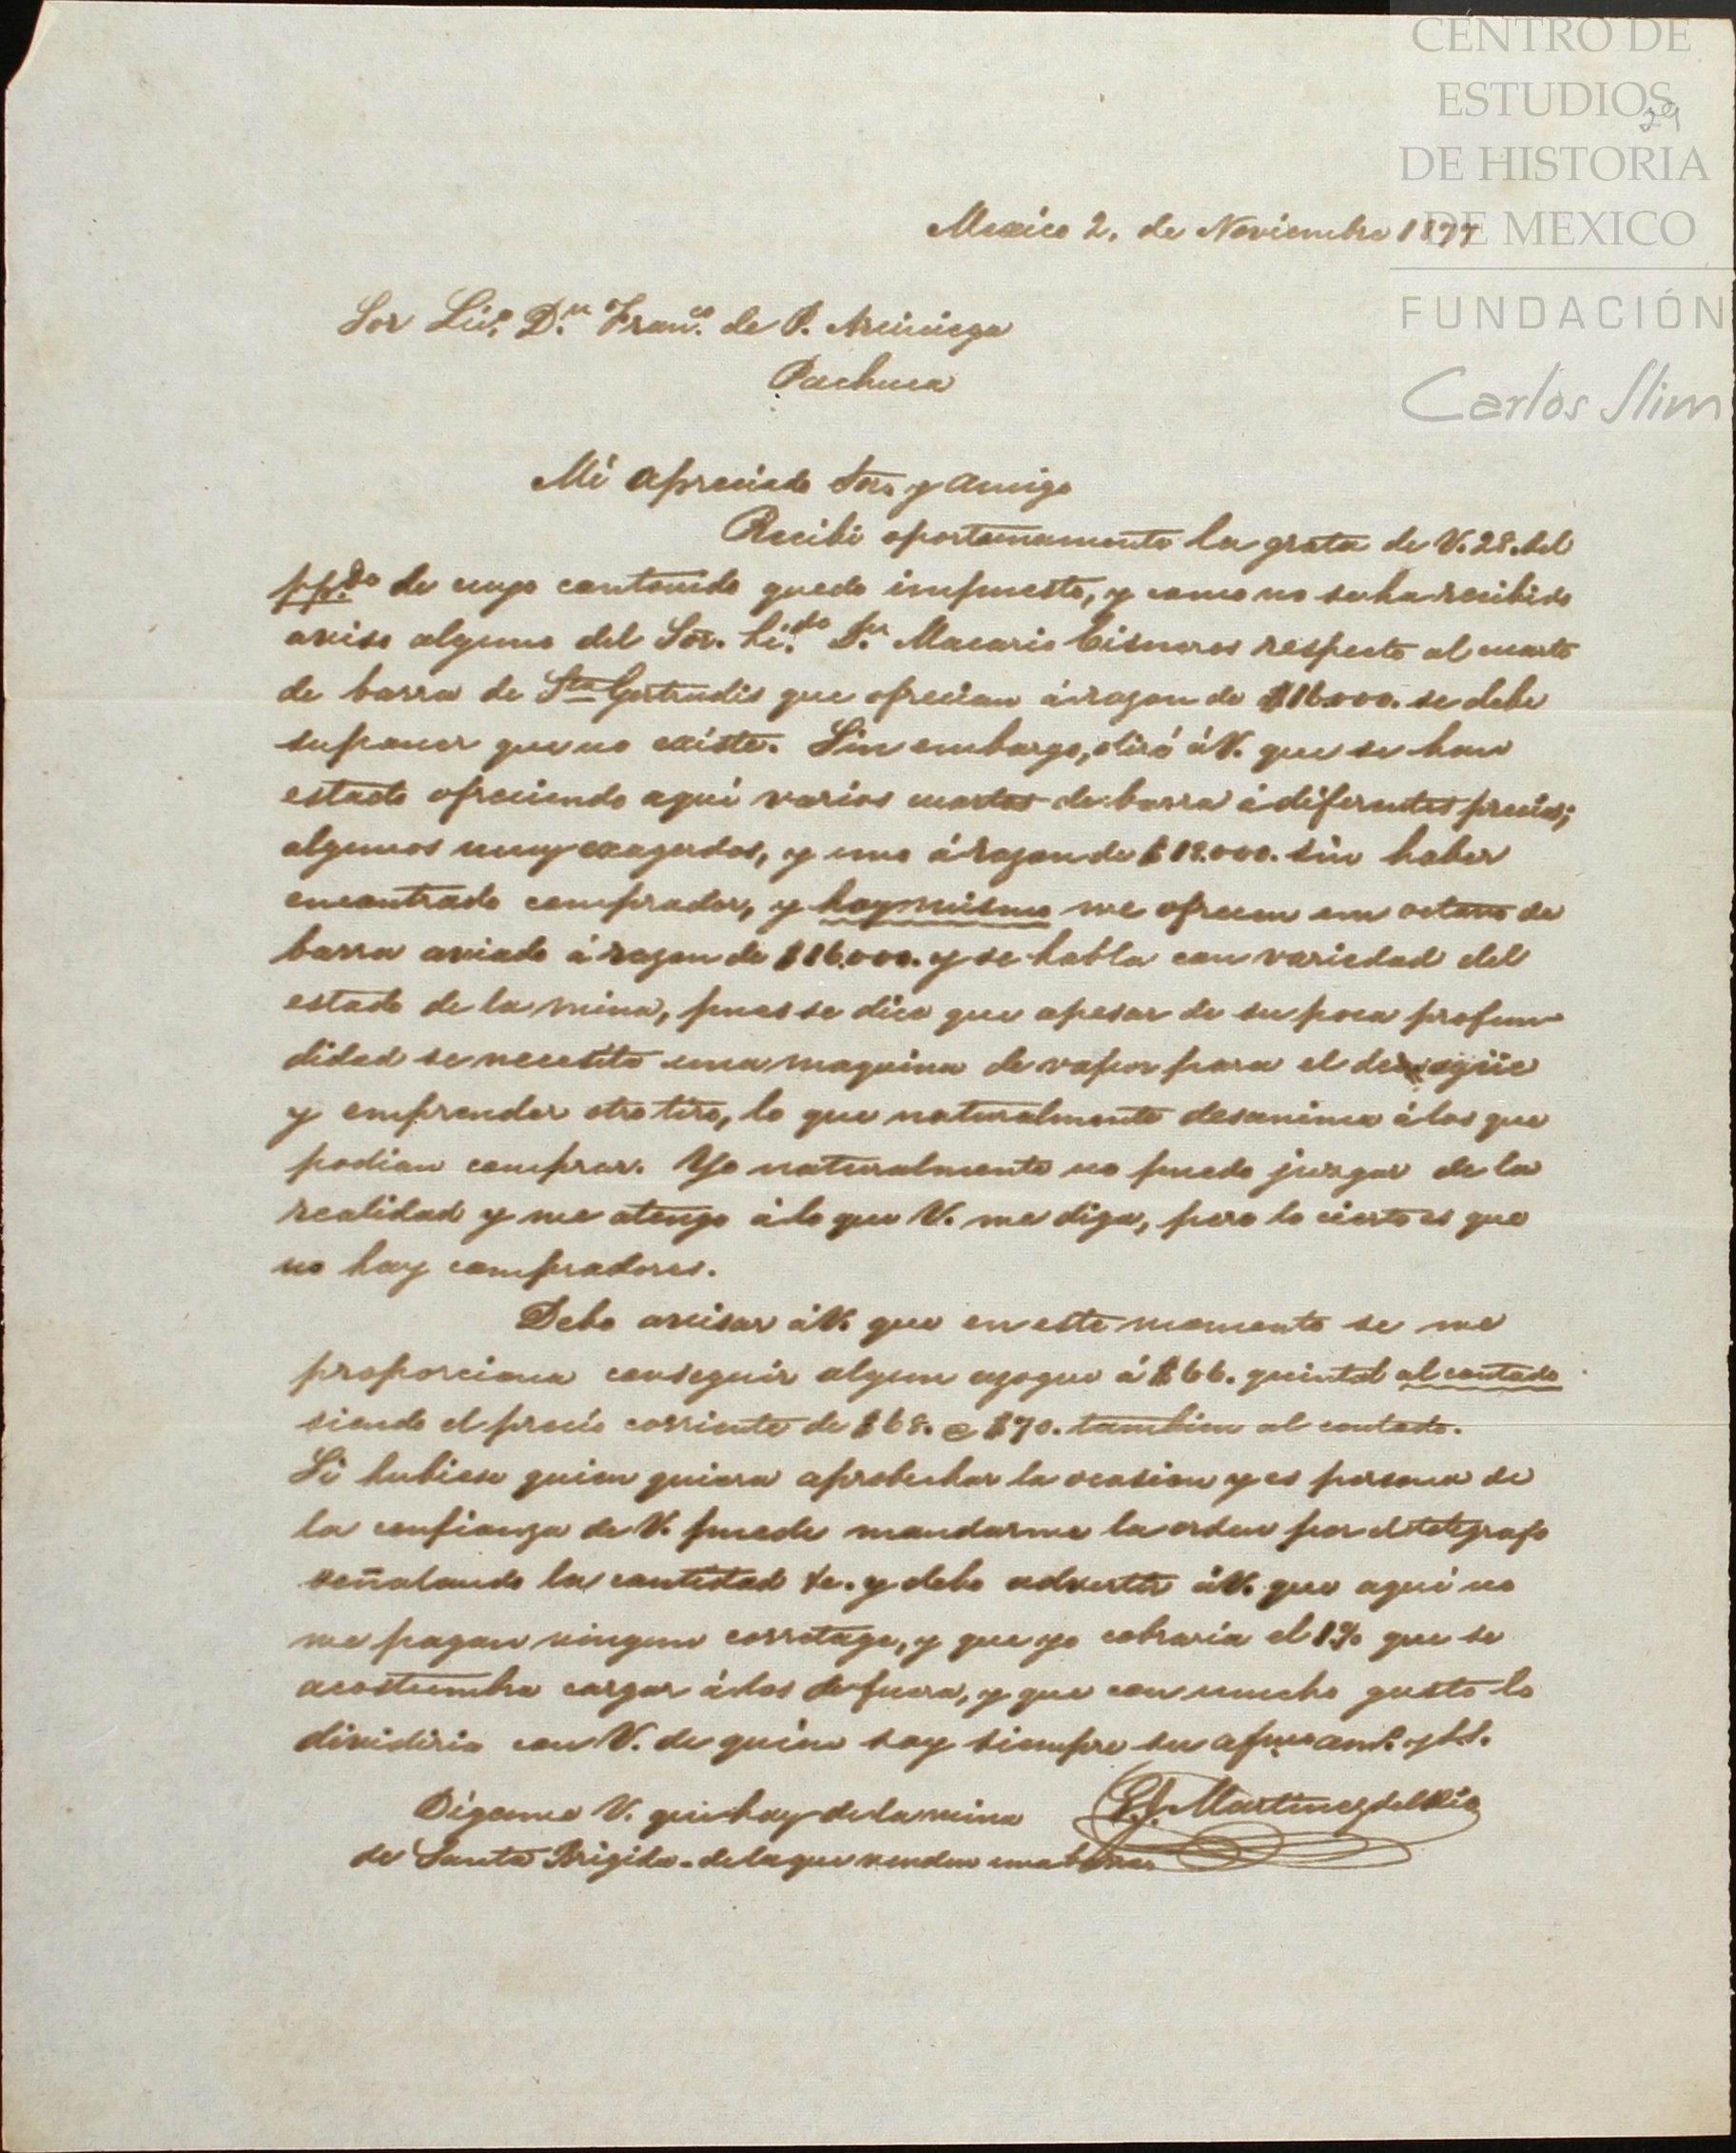 CENTRO DE
ESTUDIOS
DE HISTORIA
DE MEXICO
FUNDACIÓN
Carlos Slim
29
Mexico 2. de Noviembre 1877
Sor Lic.º D.n Fran.co de P. Arciniega
Pachuca
Mi apreciado Sor. y amigo
Recibi oportunamente la grata de V. 28. del
pp.do de cuyo contenido quedo impuesto, y como no se ha recibido
aviso alguno del Sor. Li.do D.n Macario Cisneros respecto al cuarto
de barra de Sta Gertrudis que ofrecian á razon de $16.000. se debe
suponer que no existe. Sin embargo, diré á V. que se han
estado ofreciendo aqui varios cuartos de barra á diferentes precios;
algunos muy exagerdos, y uno á razon de $18.000. sin haber
encontrado comprador, y hoy mismo me ofrecen un octavo de
barra aviado á razon de $16.000. y se habla con variedad del
estado de la mina, pues se dice que apesar de su poca profun-
didad se necesita una maquina de vapor para el desagüe
y emprender otro tiro, lo que naturalmente desanima á los que
podian comprar. Yo naturalmente no puedo juzgar de la
realidad y me atengo á lo que V. me diga, pero lo cierto es que
no hay compradores.
Debo avisar á V. que en este momento se me
proporciona conseguir algun azogue á $66. quintal al contado
siendo el precio corriente de $68. @ $70. tambien al contado.
Si hubiese quien quiera aprobechar la ocasion y es persona de
la confianza de V. puede mandarme la orden por el telegrafo
señalando la cantidad &c. y debo advertir á V. que aqui no
me pagan ningun corretage, y que yo cobraria el 1% que se
acostumbra cargar á los de fuera, y que con mucho gusto lo
dividiria con V. de quien soy siempre su afmo am.º y S.S.
Digame V. que hay de la mina
de Santa Brigida - de la que venden una barra
Martinez del Rio